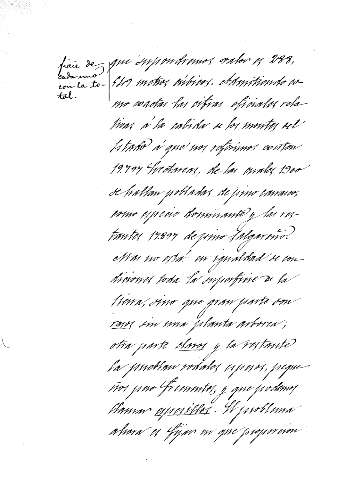 ficie de
cada uno
con la to-
tal.
que supondremos valor es 288,
metros cúbicos. Admitiendo co-
mo exactas las cifras oficiales rela-
tivas á la cabida de los montes del
Estado á que nos referimos constan
19.707 hectareas, de las cuales 1900
se hallan pobladas de pino canario
como especie dominante y las res-
tantes 17807 de pino salgareño.
Mas no está en igualdad de con-
diciones toda la superficie de la
sino que gran parte son
rasos sin una planta arborea,
otra parte claros y la restante
la pueblan rodales espesos, peque-
ños pero frecuentes, y que podemos
llamar espesillos. El problema
ahora es fijar en que proporcion